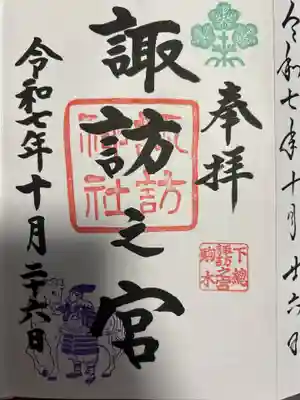 令和七年十月廿六日
奉拝
下総
諏訪之宮
駒木
諏訪之宮
諏訪
神社
令和七年十月二十六日